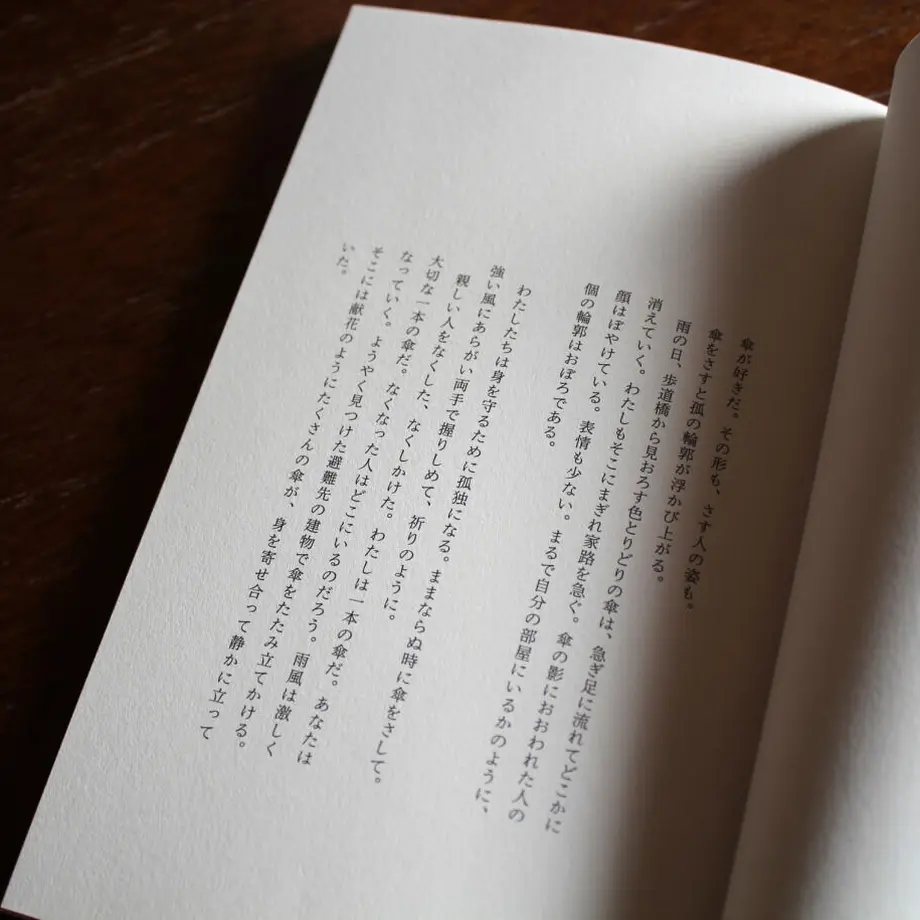 傘が好きだ。その形も、さす人の姿も。
傘をさすと孤の輪郭が浮かび上がる。
雨の日、歩道橋から見おろす色とりどりの傘は、急ぎ足に流れてどこかに
消えていく。わたしもそこにまぎれ家路を急ぐ。傘の影におおわれた人の
顔はぼやけている。表情も少ない。まるで自分の部屋にいるかのように、
個の輪郭はおぼろである。
わたしたちは身を守るために孤独になる。ままならぬ時に傘をさして。
強い風にあらがい両手で握りしめて、祈りのように。
親しい人をなくした、なくしかけた。わたしは一本の傘だ。あなたは
大切な一本の傘だ。なくなった人はどこにいるのだろう。雨風は激しく
なっていく。ようやく見つけた避難先の建物で傘をたたみ立てかける。
そこには献花のようにたくさんの傘が、身を寄せ合って静かに立って
いた。